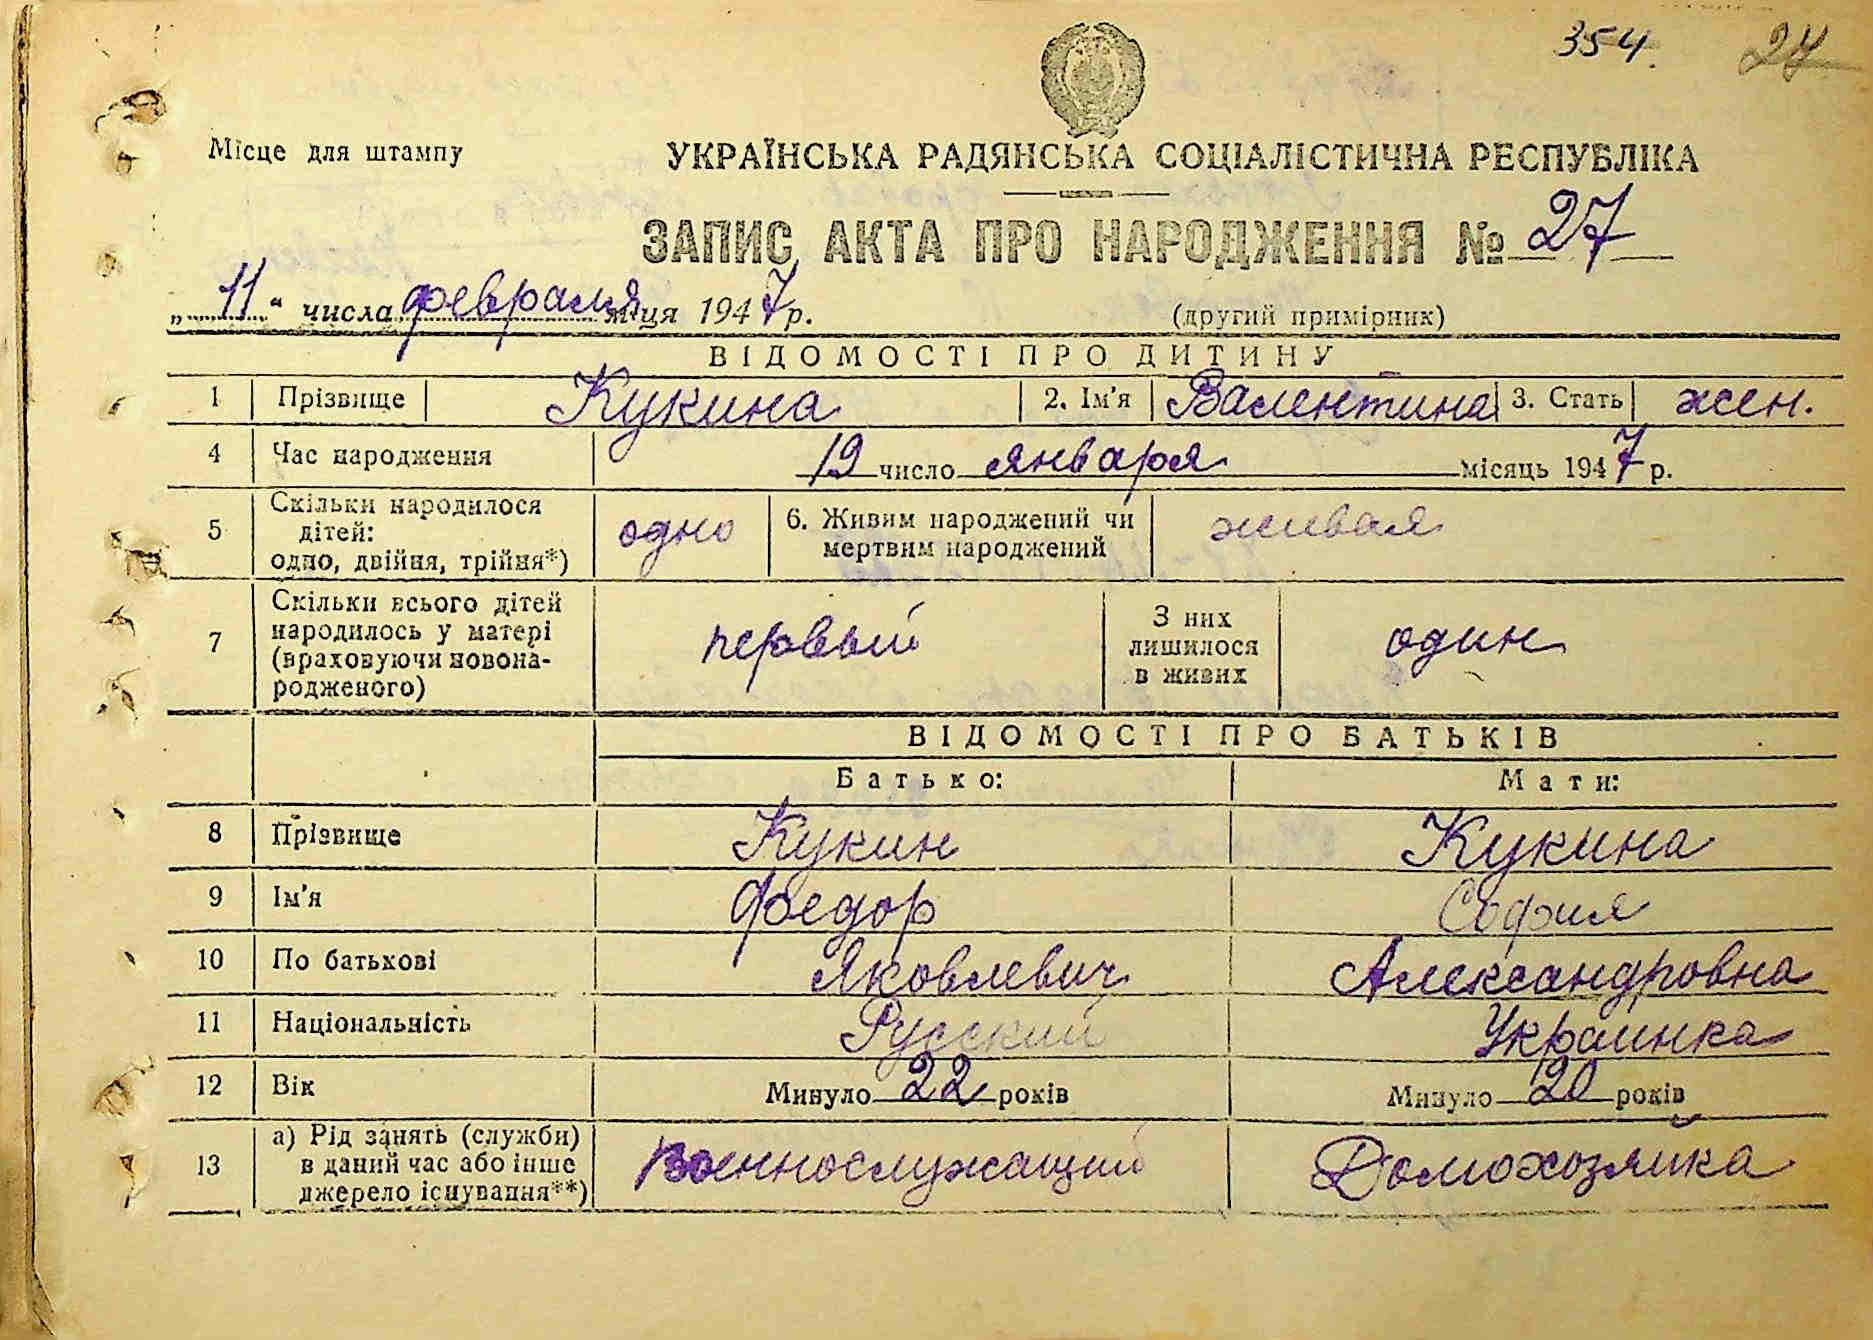 354. 27
Місце для штампу
УКРАЇНСЬКА РАДЯНСЬКА СОЦІАЛІСТИЧНА РЕСПУБЛІКА
ЗАПИС АКТА ПРО НАРОДЖЕННЯ № 27
„ 11 “ числа февраля м-ця 1947 р. (другий примірник)
ВІДОМОСТІ ПРО ДИТИНУ
1 Прізвище Кукина 2. Ім'я Валентина 3. Стать жен.
4 Час народження 19 число января місяць 1947 р.
5 Скільки народилося дітей: одно, двійня, трійня*) одно 6. Живим народжений чи мертвим народжений живая
7 Скільки всього дітей народилось у матері (враховуючи новонародженого) первый З них лишилося в живих один
ВІДОМОСТІ ПРО БАТЬКІВ
Батько: Мати:
8 Прізвище Кукин Кукина
9 Ім'я Федор София
10 По батькові Яковлевич Александровна
11 Національність Русский Украинка
12 Вік Минуло 22 років Минуло 20 років
13 а) Рід занять (служби) в даний час або інше джерело існування**) Военнослужащий Домохозяйка